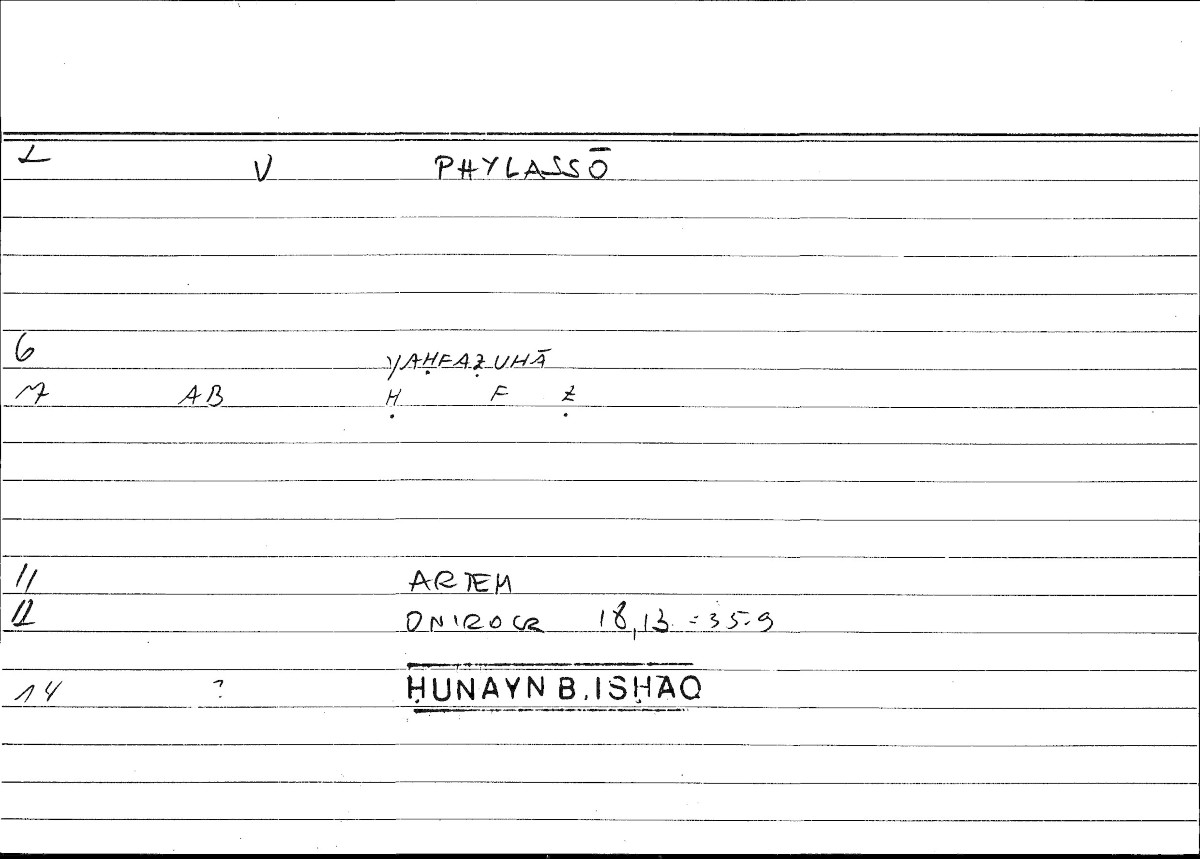 1 V PHYLASSŌ
6 YAḤFAẒUHĀ
7 AB Ḥ F Ẓ
11 ARTEM
12 ONIROCR 18,13 = 35.9
14 ? ḤUNAYN B. ISḤĀQ